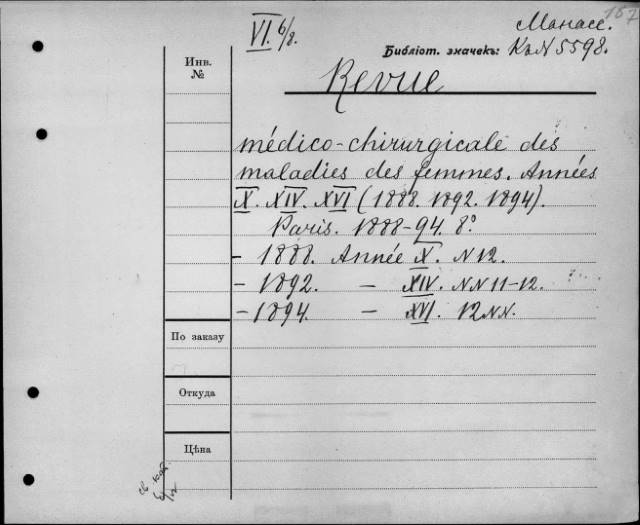 157
VI. 6/8.
Манасс.
Библіот. значекъ: КьN 5598.
Инв.
№
Revue
médico-chirurgicale des
maladies des femmes. Années
X. XIV. XVI (1888. 1892. 1894).
Paris. 1888-94. 8°.
- 1888. Année X. N 12.
- 1892. — XIV. NN 11-12.
- 1894. — XVI. 12 NN.
По заказу
Откуда
Цѣна